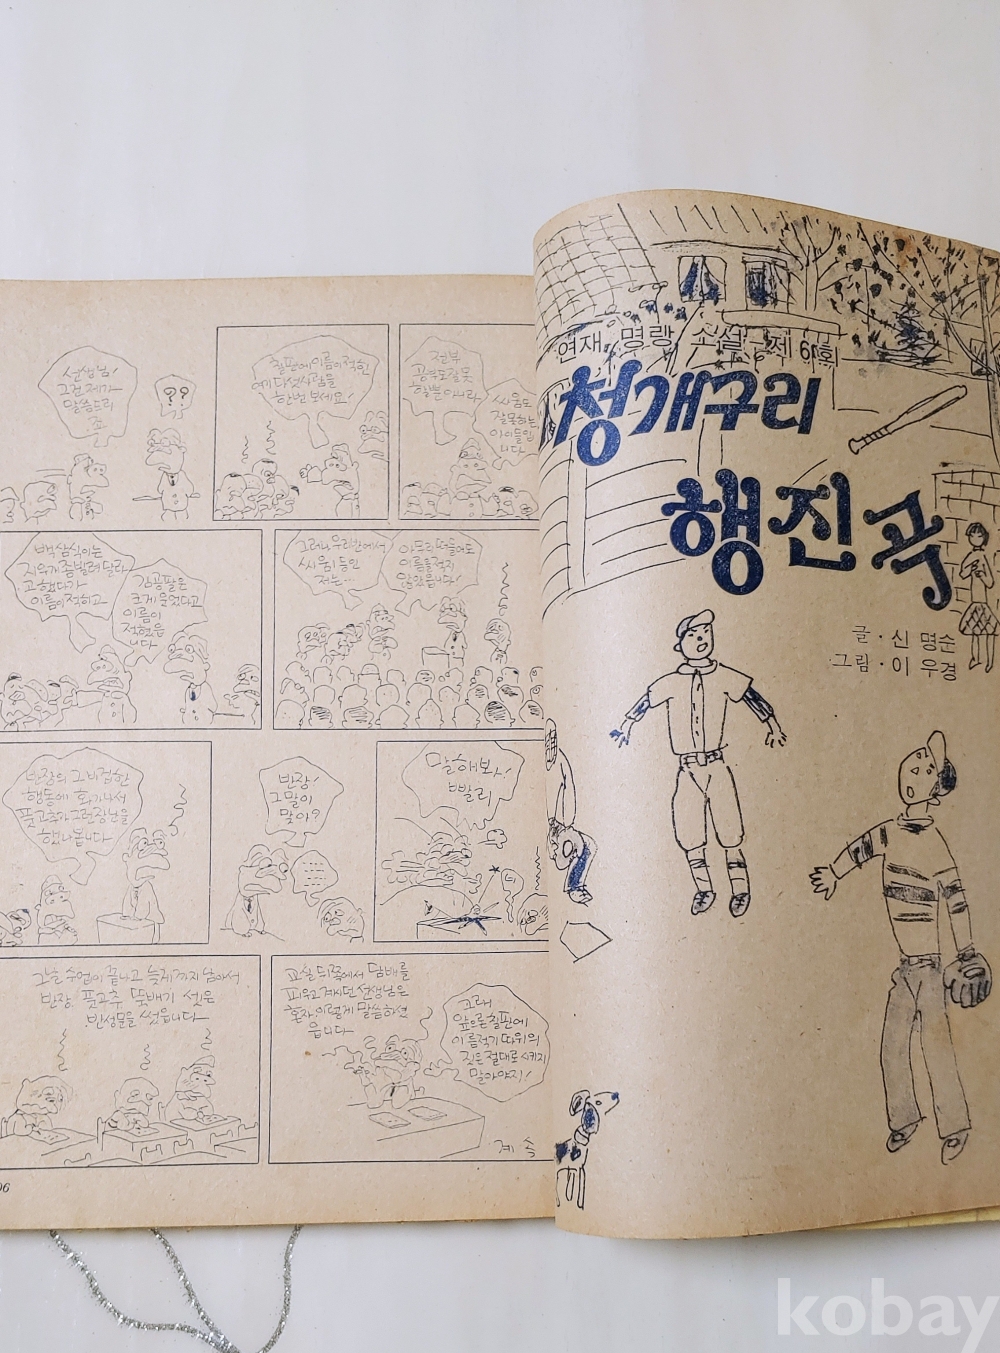 선생님!
그건 제가
말씀드리
죠
??
칠판에 이름이 적힌
예 다섯사람을
한번 보세요!
전부
공부도 잘못
할뿐 아니라
싸움도
잘못하는
아이들입
니다
백삼식이는
지우개좀 빌려 달라
고 했다가
이름이 적히고
강곰팔은
크게 웃었다고
이름이
적혔습
니다
그러나 우리반에서
싸움이 듬인
저는…
아무리 떠들어도
이름을 적지
않았읍니다!
반장의 그 비겁한
행동에 화가나서
풋고추가 그런 장난을
했나 봅니다
반장!
그말이
맞아?
말해봐!
빨리
그날 수업이 끝나고 늦게까지 남아서
반장 풋고추 뚝배기 셋은
반성문을 썼읍니다
교실 뒤쪽에서 담배를
피우고 계시던 선생님은
혼자 이렇게 말씀하셨
읍니다
그래
앞으론 칠판에
이름적기 따위의
짓은 절대로 시키지
말아야지!
계속
96
연재 명랑 소설 제 6회
청개구리
행진곡
글·신 명순
그림·이 우경
kobay